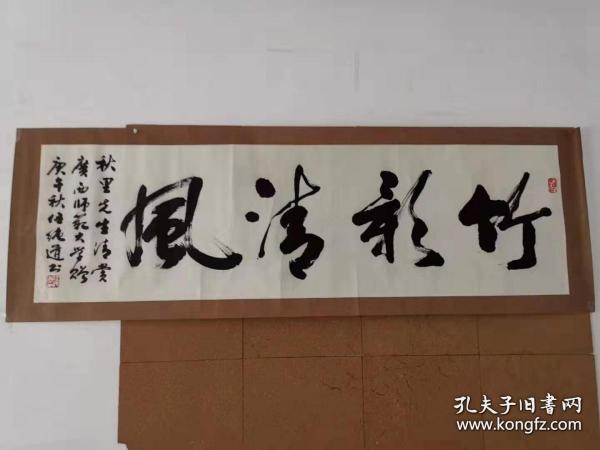 竹影清風
秋里先生清賞
廣西師範大学贈
庚午秋伍純道书
孔夫子旧书网
www.kongfz.com